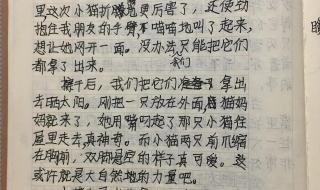 里这次小猫折腾更厉害了，还使劲
抱住我朋友的手臂不喵喵地叫了起来，
想让她网开一面。没办法只能把它们
都拿了出来。
我们
擦干后，我们把它们拿出
去晒太阳。刚把一只放在外面猫妈
妈就来了，她用嘴叼起了那只小猫在
屋里走去真神奇。而小猫两只前爪缩
在胸前，双脚悬空的样子真可爱。这
或许就是大自然地的力量吧。